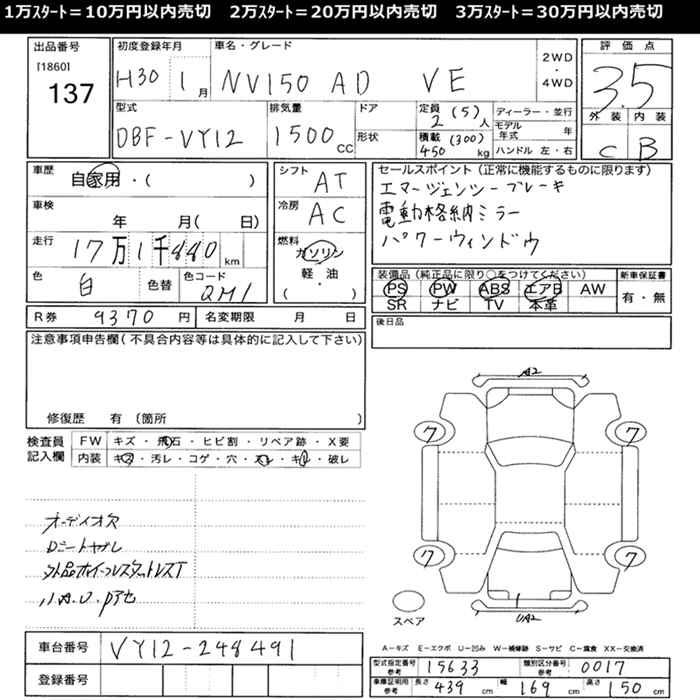 1万スタート=10万円以内売切 2万スタート=20万円以内売切 3万スタート=30万円以内売切
出品番号
[1860]
137
初度登録年月
H30 1月
車名・グレード
NV150 AD VE
2WD・4WD
評価点
3.5
外装 内装
C B
型式
DBF-VY12
排気量
1500CC
ドア
形状
定員 2 (5)人
積載 (300)
450 kg
ディーラー・並行
モデル年式 年
ハンドル 左・右
車歴
自家用・( )
車検
年 月( 日)
走行
17万1千880km
色
白
色替
色コード
QM1
シフト
AT
冷房
AC
燃料
ガソリン
軽・油
( ・ )
セールスポイント(正常に機能するものに限ります)
エマージェンシーブレーキ
電動格納ミラー
パワーウィンドウ
装備品(純正品に限り○をつけてください)
PS PW ABS エアB AW
SR ナビ TV 本革
新車保証書
有・無
R券 9370円
名変期限 月 日
後日品
注意事項申告欄(不具合内容等は具体的に記入して下さい)
修復歴 有(箇所 )
検査員記入欄
FW キズ・飛石・ヒビ割・リペア跡・X要
内装 キズ・汚レ・コゲ・穴・スレ・キレ・破レ
オーディオ欠
外品ホイールスタットレスT
A2
7
7
7
7
UA2
スペア
A-キズ E-エクボ U-凹み W-補修跡 S-サビ C-腐食 XX-交換済
車台番号 VY12-248491
登録番号
型式指定番号 参考 15633
類別区分番号 参考 0017
車庫証明用 参考 長さ 439cm 幅 169cm 高さ 150cm